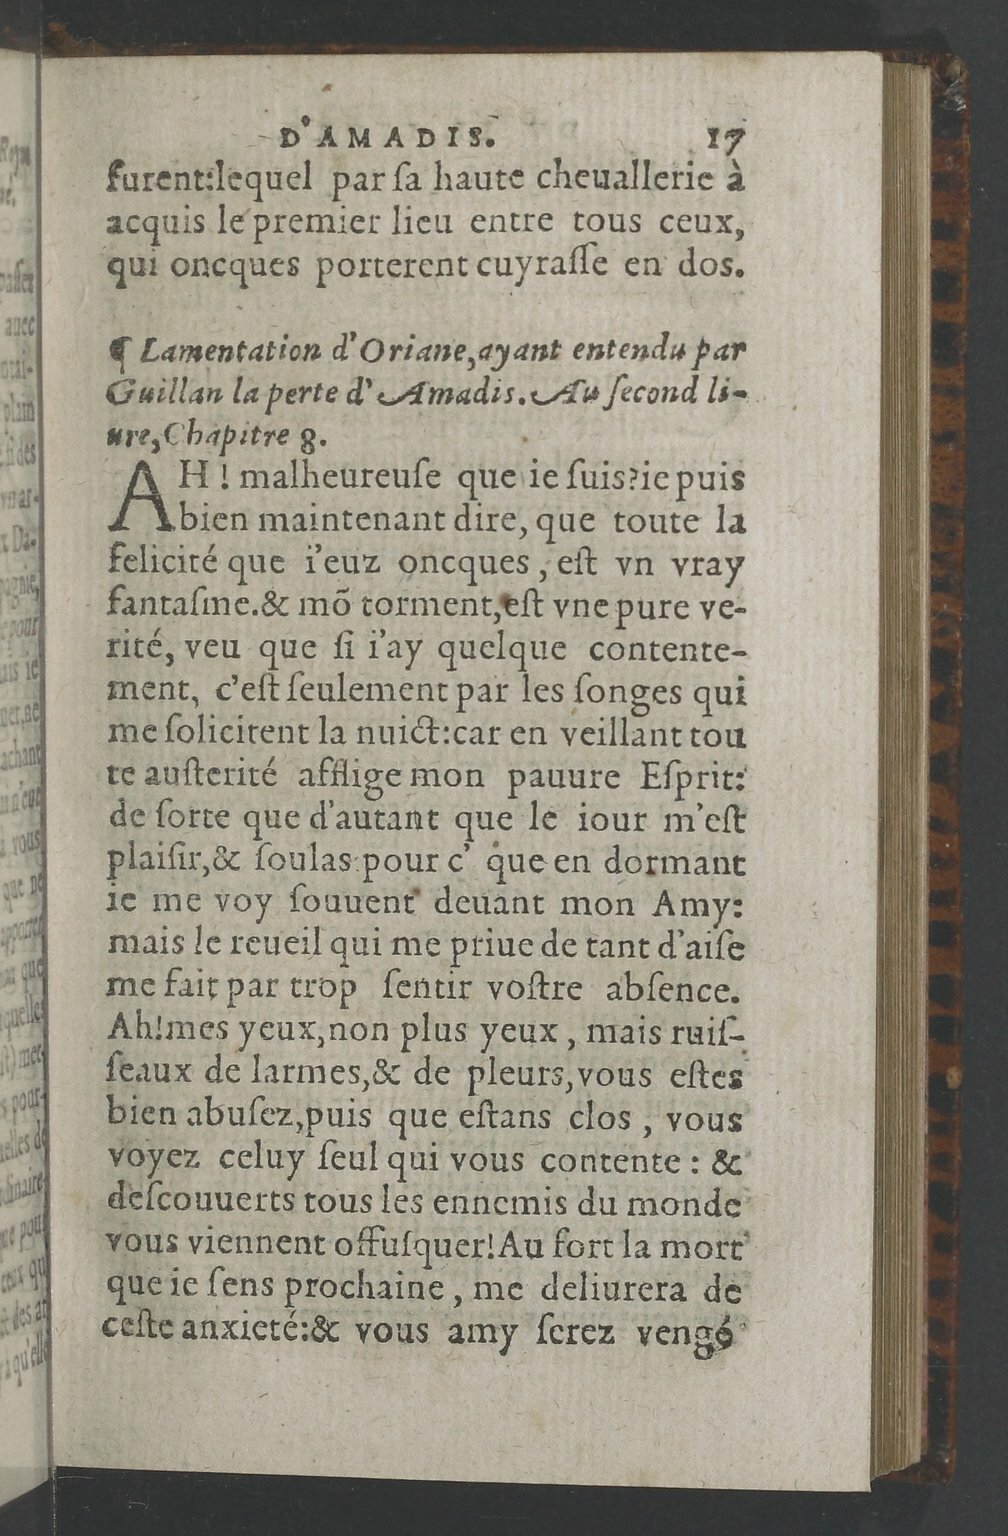 D'AMADIS. 17
furent:lequel par ſa haute cheuallerie à
acquis le premier lieu entre tous ceux,
qui oncques porterent cuyraſſe en dos.
¶ Lamentation d'Oriane,ayant entendu par
Guillan la perte d'Amadis. Au ſecond li-
ure,Chapitre 8.
AH ! malheureuſe que ie ſuis?ie puis
bien maintenant dire, que toute la
felicité que i'euz oncques , eſt vn vray
fantaſme.& mõ torment,eſt vne pure ve-
rité, veu que ſi i'ay quelque contente-
ment, c'eſt ſeulement par les ſonges qui
me ſolicitent la nuict:car en veillant tou
te auſterité afflige mon pauure Eſprit:
de ſorte que d'autant que le iour m'eſt
plaiſir,& ſoulas pour c' que en dormant
ie me voy ſouuent deuant mon Amy:
mais le reueil qui me priue de tant d'aiſe
me fait par trop ſentir voſtre abſence.
Ah!mes yeux,non plus yeux , mais ruiſ-
ſeaux de larmes,& de pleurs,vous eſtes
bien abuſez,puis que eſtans clos , vous
voyez celuy ſeul qui vous contente : &
deſcouuerts tous les ennemis du monde
vous viennent offuſquer!Au fort la mort
que ie ſens prochaine , me deliurera de
ceſte anxieté:& vous amy ſerez vengé